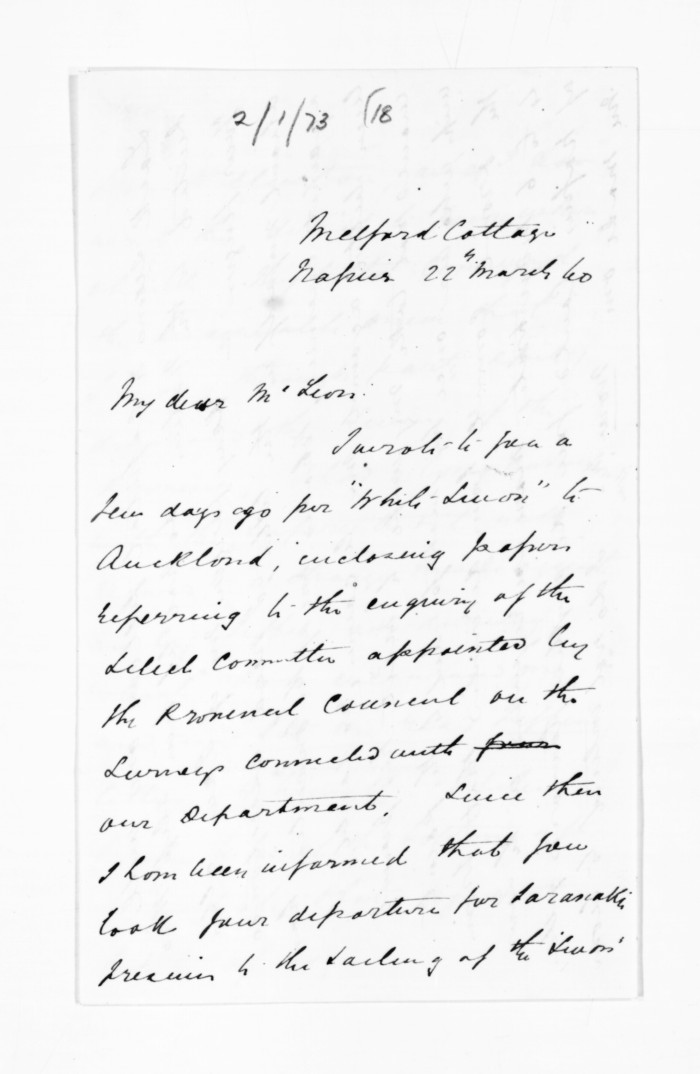 2/1/73 (18
Melford Cottage
Napier 22th March 60
My dear Mc Lean.
I wrote to you a
few days ago per "White Swan" to
Auckland, inclosing papers
referring to the enquiry of the
Select Committee appointed by
the Provincial Council on the
Surveys connected with
our Department. Since then
I have been informed that you
took your departure for Taranaki
previous to the Sailing of the "Swan"